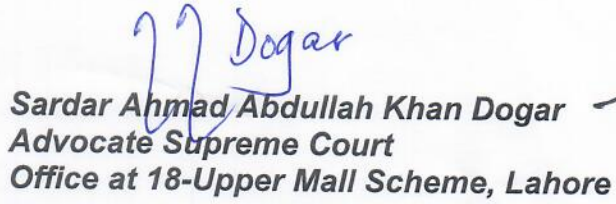 Dogar
Sardar Ahmad Abdullah Khan Dogar
Advocate Supreme Court
Office at 18-Upper Mall Scheme, Lahore